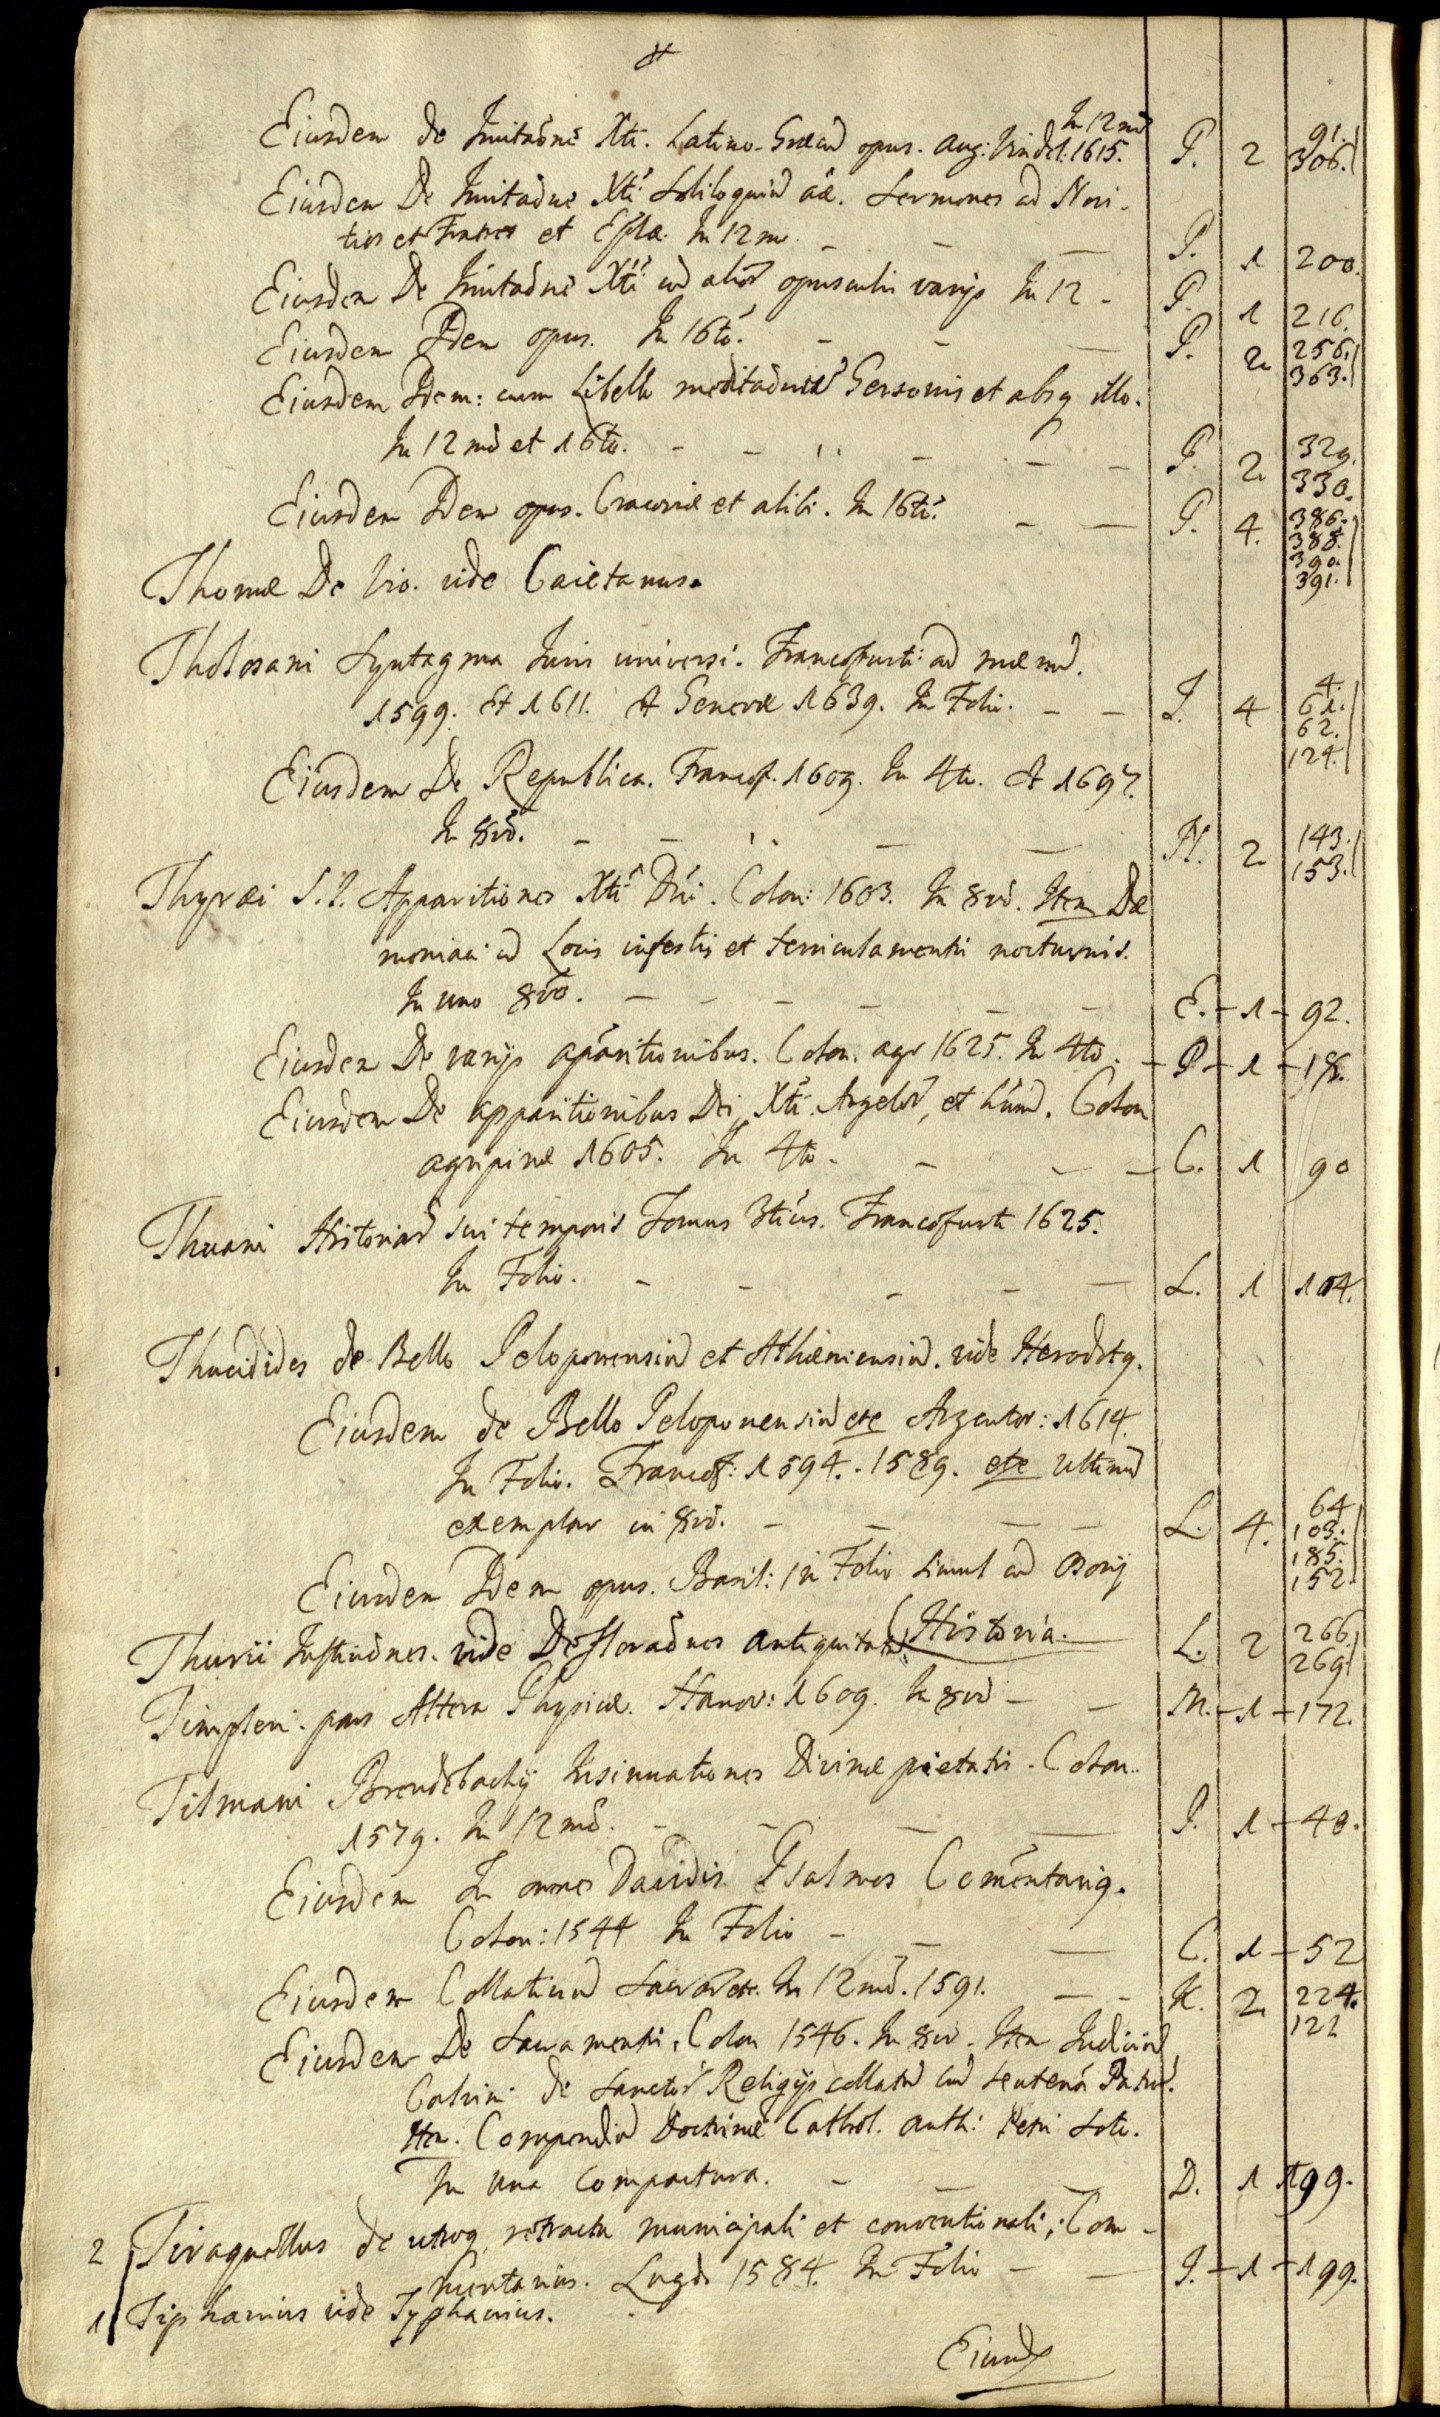 In 12mō
Eiusdem de Imitaōne Xti. Latino-Græcū opus. Aug: Vindel: 1615. P. 2 91. 306.
Eiusdem De Imitaōne Xti Soliloquiū aæ. Sermones ad Novi-
tios et Fratres et Eplæ. In 12mo - - - P. 1 200.
Eiusdem De Imitaōne Xti cū alior opusculis varijs In 12 - P. 1 216.
Eiusdem Idem opus. In 16tō. - - - P. 2 256. 363.
Eiusdem Idem: cum Libello meditaōnū Gersonis et absq illo.
In 12mō et 16to. - - - - - - P. 2 329. 330.
Eiusdem Idem opus. Cracoviæ et alibi. In 16tō. - - P. 4. 386. 388. 390. 391.
Thomæ De Vio. vide Caietanus.
Tholosani Syntagma Juris universi. Francofurti ad mænū.
1599. Et 1611. Et Genevæ 1639. In Folio. - - I. 4 4. 61. 62. 124.
Eiusdem De Republica. Francof. 1609. In 4to. Et 1697.
In 8vō. - - - - - H. 2 143. 153.
Thyræi S.I. Apparitiones Xti Dni. Colon: 1603. In 8vō. Item Dæ
moniaci cū Locis infestis et terriculamentis nocturnis.
In uno 8vō. - - - - - E. - 1 - 92.
Eiusdem De varijs apāritionibus. Colon. agr 1625. In 4to. - P - 1 - 18.
Eiusdem De apparitionibus Dei, Xti. Angelor, et hūmd. Colon
agripinæ 1605. In 4to - - - - C. 1 90
Thuani Historiar sui temporis Tomus 3tius. Francofurti 1625.
In Folio. - - - - - L. 1 104.
Thucidides de Bello Peloponensiū et Athæniensiū. vide Herodotq.
Eiusdem de Bello Peloponensiū etc Argentor: 1614.
In Folio. Francof: 1594. . 1589. etc ultimū
exemplar in 8vō. - - - - L. 4. 64 103. 185. 152
Eiusdem Idem opus. Basil: in Folio simul cū Osorij
Historia. - L. 2 266. 269
Thurii Institiōnes. vide Defloraōnes antiquitatū.
Timpleri. pars Altera Physicæ. Hanov: 1609. In 8vō - - M. - 1 - 172.
Tilmani Bredebachij Insinuationes Divinæ pietatis. Colon..
1579. In 12mō. - - - - P. 1 - 40.
Eiusdem In omnes Davidis Psalmos Comēntariq.
Colon: 1544 In Folio - - - C. 1 - 52
Eiusdem Collationū Sacrar etc. In 12mō. 1591. - - K. 2 224. 122
Eiusdem De Sacramentis. Colon 1546. In 8vo. Item Judiciū
Calvini de Sanctor Religijs collatū cū sententā Patrū.
Item. Compendiū Doctrinæ Cathol. auth: Petri Soto.
In una compactura. - - - D. 1 199.
2 Tiraquellus de utroq retractu municipali et conventionali, Com-
mentarius. Lugd. 1584. In Folio - - I. - 1 - 199.
1 Tiphanius vide Typhanius.
Eiusd